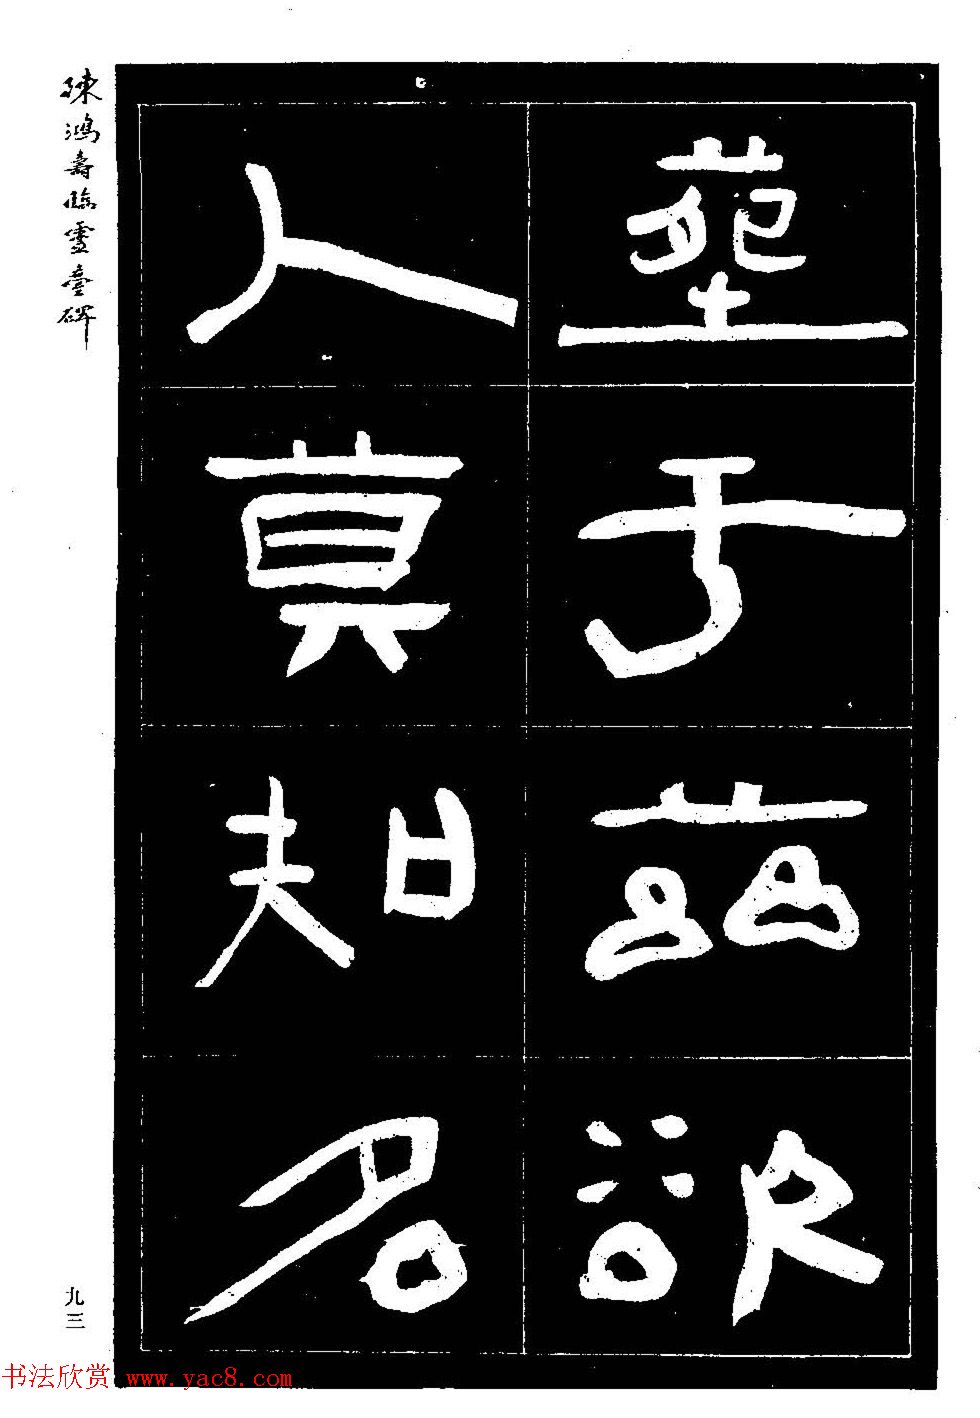 塟于茲欲
人莫知名
陳鴻壽臨靈臺碑
九三
书法欣赏 www.yac8.com